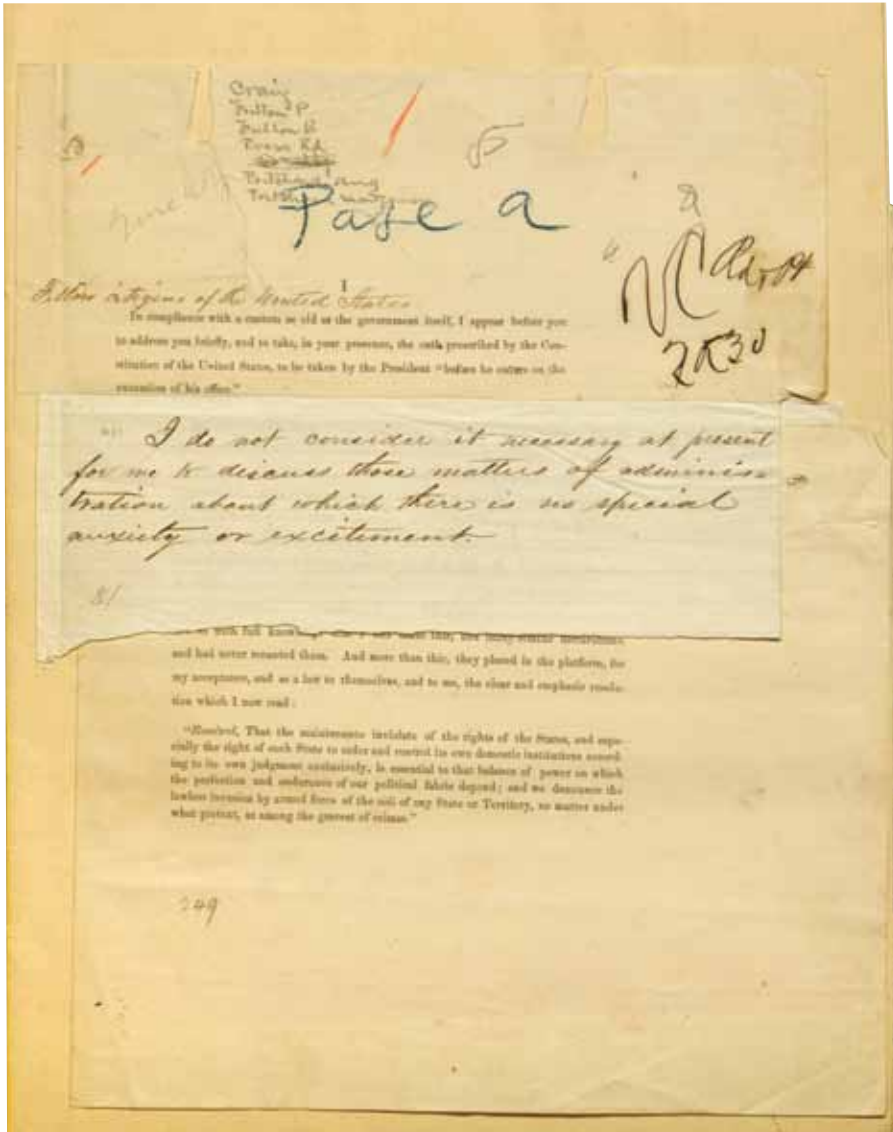 Craig
Fulton P
Fulton
Page a
1
Fellow citizens of the United States
In compliance with a custom as old as the government itself, I appear before you
to address you briefly, and to take, in your presence, the oath prescribed by the Con-
stitution of the United States, to be taken by the President "before he enters on the
execution of his office."
I do not consider it necessary at present
for me to discuss those matters of adminis-
tration about which there is no special
anxiety or excitement.
and had never recanted them. And more than this, they placed in the platform, for
my acceptance, and as a law to themselves, and to me, the clear and emphatic resolu-
tion which I now read:
"Resolved, That the maintenance inviolate of the rights of the States, and espe-
cially the right of each State to order and control its own domestic institutions accord
ing to its own judgment exclusively, is essential to that balance of power on which
the perfection and endurance of our political fabric depend; and we denounce the
lawless invasion by armed force of the soil of any State or Territory, no matter under
what pretext, as among the gravest of crimes."
249